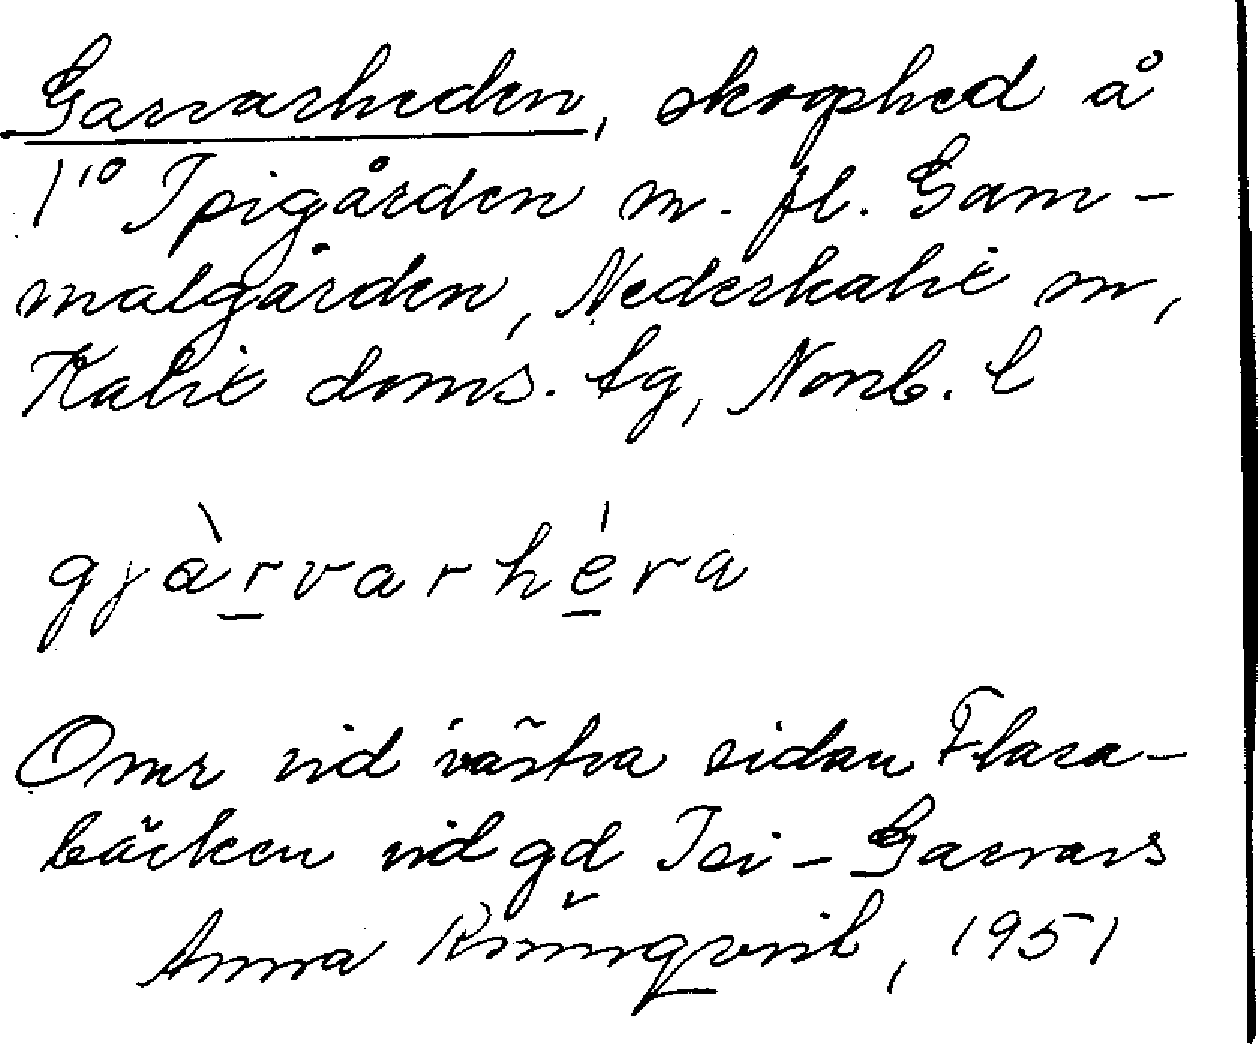 Garvarheden, skogshed å
1¹⁰ Spigården m. fl. Gam-
malgården, Nederkalix sn,
Kalix doms. tg, Norrb. l
gjàrvarhéra
Omr vid västra sidan Flara-
bäcken vid gd Isi-Garvars
Anna Rönnqvist, 1951